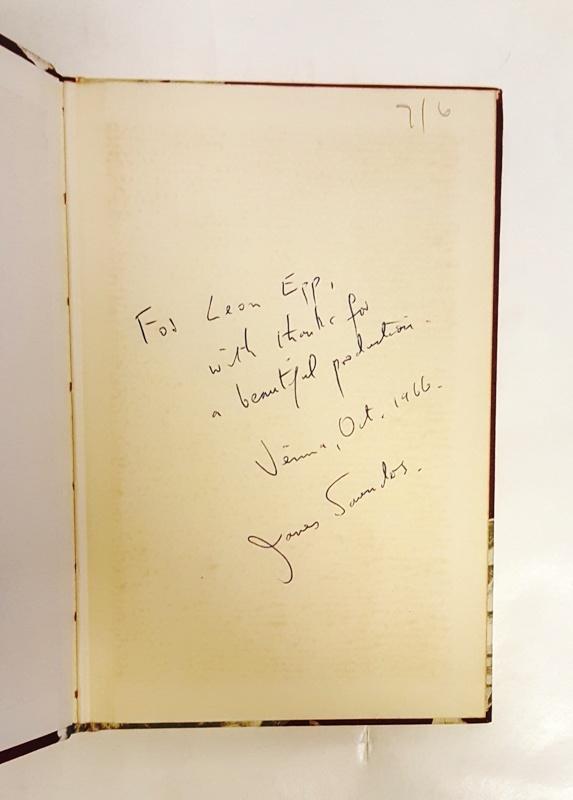 7/6
For Leon Epp,
with thanks for
a beautiful production.
Vienna, Oct. 1966.
James Saunders.